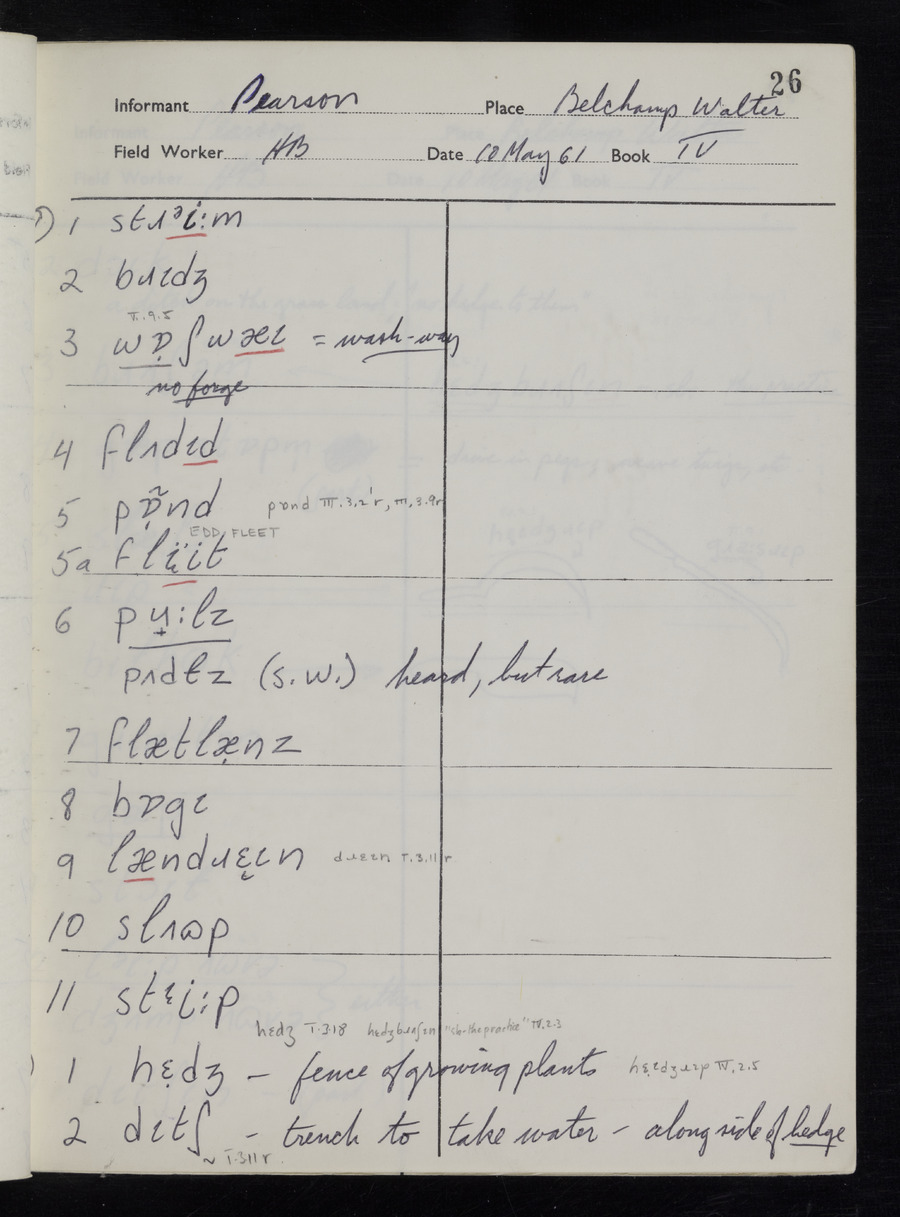 26
Informant Pearson Place Belchamp Walter
Field Worker HB Date 10 May 61 Book IV
1) 1 stɹᵊi:m
2 bɹɪdʒ
I.9.5
3 wɒ̣ʃwæɪ = wash-way
no forge
4 flʌdɪd
5 pɒ̣̃nd pɒnd III.3.2'r, III.3.9r
EDD FLEET
5a flï̞it
6 pʉ̟:lz
pʌdɫz (s.w.) heard, but rare
7 flætlæ̣nz
8 bɒgɪ
9 lændɹɛ̞ɪn dɹɛɪn I.3.11r
10 slʌɷp
11 stᵋi̞:p
hɛdʒ I.3.18 hɛdʒbɹʌʃɪn "sb-the practice" IV.2.3
1 hɛ̣dʒ – fence of growing plants hɛ̣ɪdʒɹɪp IV.2.5
2 dɪtʃ – trench to take water – along side of hedge
~ I.3.11r.